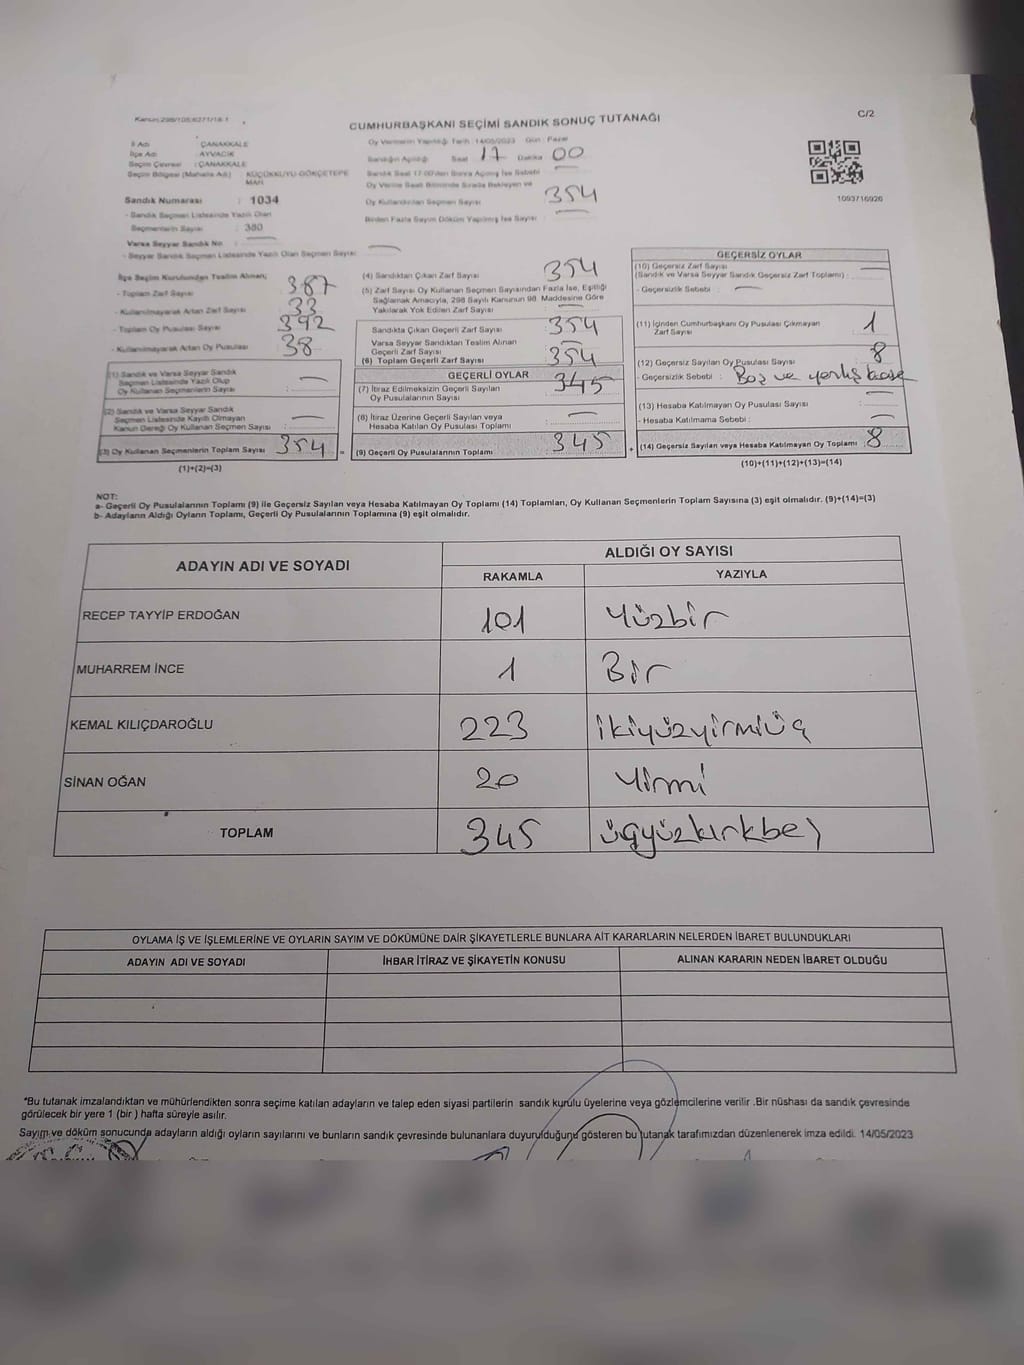 Kanun:298/105;6271/18-1
CUMHURBAŞKANI SEÇİMİ SANDIK SONUÇ TUTANAĞI
C/2
İl Adı : ÇANAKKALE
İlçe Adı : AYVACIK
Seçim Çevresi : ÇANAKKALE
Seçim Bölgesi (Mahalle Adı) : KÜÇÜKKUYU-GÖKÇETEPE MAH
Sandık Numarası : 1034
- Sandık Seçmen Listesinde Yazılı Olan
Seçmenlerin Sayısı : 380
Varsa Seyyar Sandık No :
- Seyyar Sandık Seçmen Listesinde Yazılı Olan Seçmen Sayısı :
Oy Vermenin Yapıldığı Tarih : 14/05/2023 Gün : Pazar
Sandığın Açıldığı Saat 17 Dakika 00
Sandık Saat 17:00'den Sonra Açılmış İse Sebebi :
Oy Verme Saati Bitiminde Sırada Bekleyen ve
Oy Kullandırılan Seçmen Sayısı : 354
Birden Fazla Sayım Döküm Yapılmış İse Sayısı :
1093716926
İlçe Seçim Kurulundan Teslim Alınan;
- Toplam Zarf Sayısı : 387
- Kullanılmayarak Artan Zarf Sayısı : 33
- Toplam Oy Pusulası Sayısı : 392
- Kullanılmayarak Artan Oy Pusulası : 38
(1) Sandık ve Varsa Seyyar Sandık
Seçmen Listesinde Yazılı Olup
Oy Kullanan Seçmenlerin Sayısı :
(2) Sandık ve Varsa Seyyar Sandık
Seçmen Listesinde Kayıtlı Olmayan
Kanun Gereği Oy Kullanan Seçmen Sayısı :
(3) Oy Kullanan Seçmenlerin Toplam Sayısı : 354
(1)+(2)=(3)
(4) Sandıktan Çıkan Zarf Sayısı : 354
(5) Zarf Sayısı Oy Kullanan Seçmen Sayısından Fazla İse, Eşitliği
Sağlamak Amacıyla, 298 Sayılı Kanunun 98. Maddesine Göre
Yakılarak Yok Edilen Zarf Sayısı :
Sandıkta Çıkan Geçerli Zarf Sayısı : 354
Varsa Seyyar Sandıktan Teslim Alınan
Geçerli Zarf Sayısı :
(6) Toplam Geçerli Zarf Sayısı : 354
GEÇERLİ OYLAR
(7) İtiraz Edilmeksizin Geçerli Sayılan
Oy Pusulalarının Sayısı : 345
(8) İtiraz Üzerine Geçerli Sayılan veya
Hesaba Katılan Oy Pusulası Toplamı :
= (9) Geçerli Oy Pusulalarının Toplamı : 345
GEÇERSİZ OYLAR
(10) Geçersiz Zarf Sayısı
(Sandık ve Varsa Seyyar Sandık Geçersiz Zarf Toplamı) :
- Geçersizlik Sebebi :
(11) İçinden Cumhurbaşkanı Oy Pusulası Çıkmayan
Zarf Sayısı : 1
(12) Geçersiz Sayılan Oy Pusulası Sayısı : 8
- Geçersizlik Sebebi : Boş ve yanlış
(13) Hesaba Katılmayan Oy Pusulası Sayısı :
- Hesaba Katılmama Sebebi :
+ (14) Geçersiz Sayılan veya Hesaba Katılmayan Oy Toplamı : 8
(10)+(11)+(12)+(13)=(14)
NOT:
a- Geçerli Oy Pusulalarının Toplamı (9) ile Geçersiz Sayılan veya Hesaba Katılmayan Oy Toplamı (14) Toplamları, Oy Kullanan Seçmenlerin Toplam Sayısına (3) eşit olmalıdır. (9)+(14)=(3)
b- Adayların Aldığı Oyların Toplamı, Geçerli Oy Pusulalarının Toplamına (9) eşit olmalıdır.
ADAYIN ADI VE SOYADI
ALDIĞI OY SAYISI
RAKAMLA
YAZIYLA
RECEP TAYYİP ERDOĞAN 101 Yüzbir
MUHARREM İNCE 1 Bir
KEMAL KILIÇDAROĞLU 223 ikiyüzyirmiüç
SİNAN OĞAN 20 Yirmi
TOPLAM 345 üçyüzkırkbeş
OYLAMA İŞ VE İŞLEMLERİNE VE OYLARIN SAYIM VE DÖKÜMÜNE DAİR ŞİKAYETLERLE BUNLARA AİT KARARLARIN NELERDEN İBARET BULUNDUKLARI
ADAYIN ADI VE SOYADI
İHBAR İTİRAZ VE ŞİKAYETİN KONUSU
ALINAN KARARIN NEDEN İBARET OLDUĞU
*Bu tutanak imzalandıktan ve mühürlendikten sonra seçime katılan adayların ve talep eden siyasi partilerin sandık kurulu üyelerine veya gözlemcilerine verilir .Bir nüshası da sandık çevresinde
görülecek bir yere 1 (bir ) hafta süreyle asılır.
Sayım ve döküm sonucunda adayların aldığı oyların sayılarını ve bunların sandık çevresinde bulunanlara duyurulduğunu gösteren bu tutanak tarafımızdan düzenlenerek imza edildi. 14/05/2023